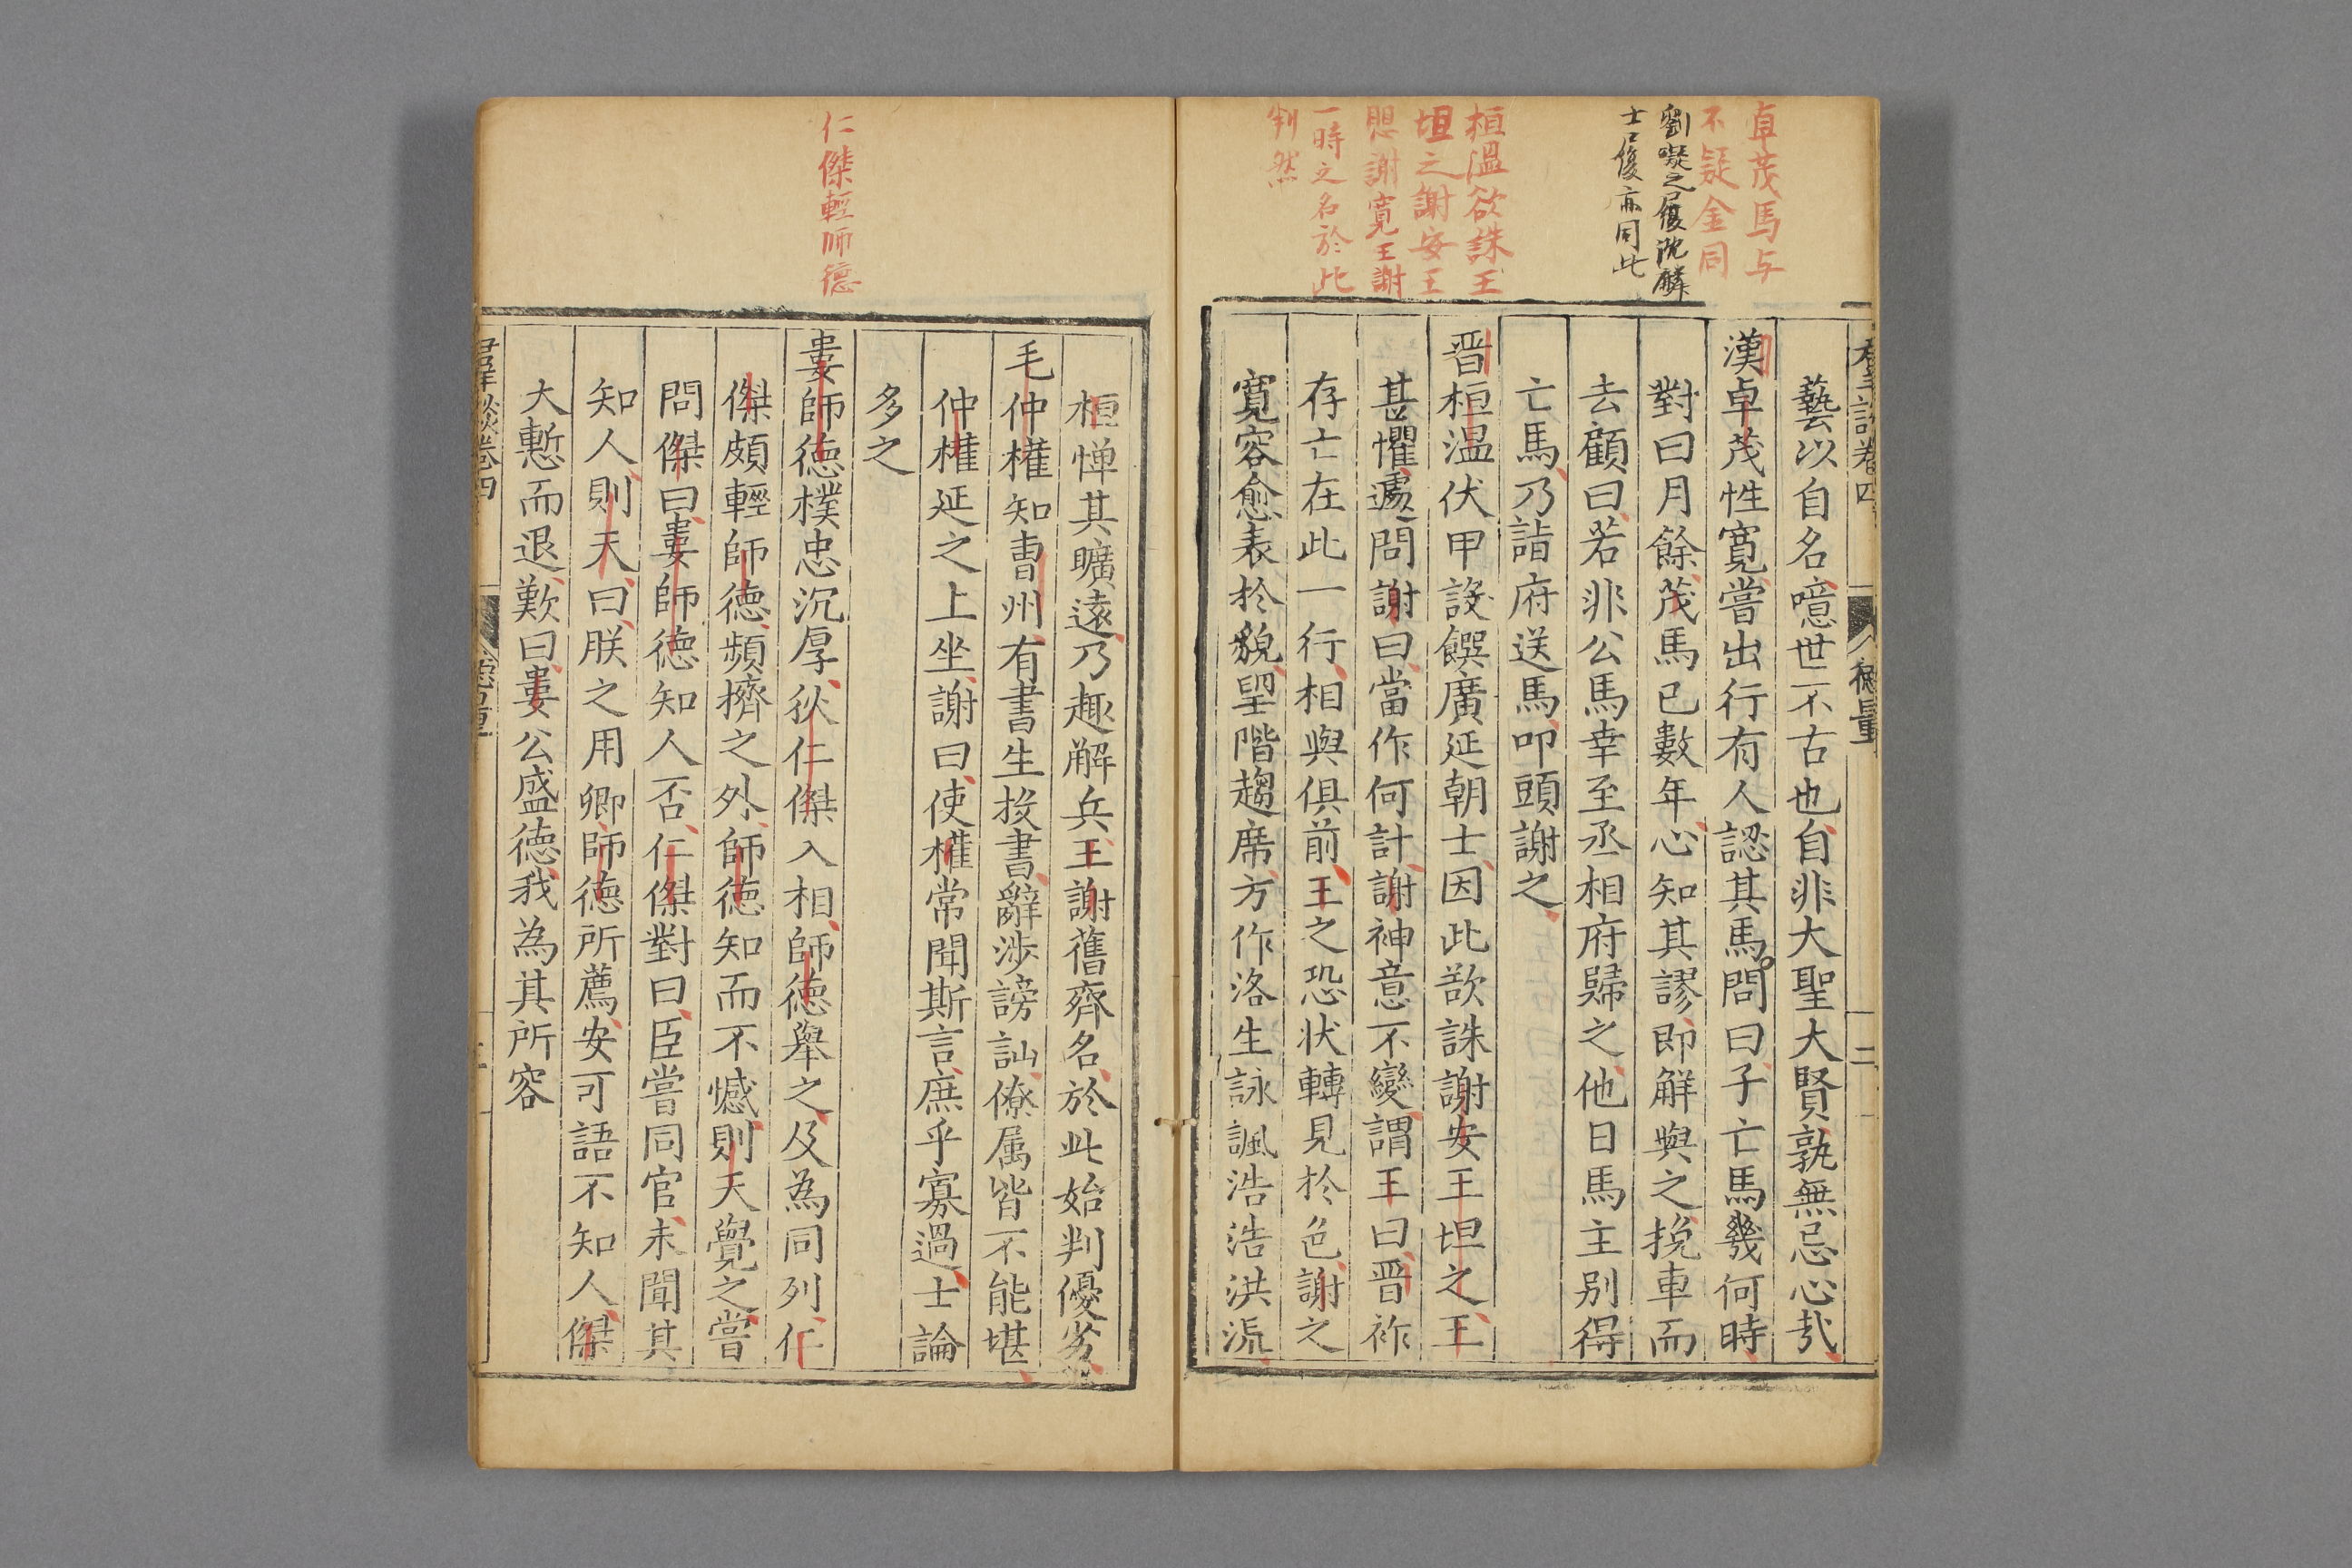 卓茂馬与
不疑金同
劉凝之屐沈麟
士屐亦同此
桓溫欲誅王
坦之謝安王
恐謝寬王謝
一時之名於此
判然
德量
二
藝以自名噫世不古也自非大聖大賢孰無忌心哉
漢卓茂性寬嘗出行有人認其馬問曰子亡馬幾何時
對曰月餘茂馬已數年心知其謬即解與之挽車而
去顧曰若非公馬幸至丞相府歸之他日馬主別得
亡馬乃詣府送馬叩頭謝之
晉桓溫伏甲設饌廣延朝士因此欲誅謝安王坦之王
甚懼遽問謝曰當作何計謝神意不變謂王曰晉祚
存亡在此一行相與俱前王之恐状轉見於色謝之
寬容愈表於貌望階趨席方作洛生詠諷浩浩洪流
桓憚其曠遠乃趣解兵王謝舊齊名於此始判優劣
毛仲權知曹州有書生投書辭涉謗訕僚属皆不能堪
仲權延之上坐謝曰使權常聞斯言庶乎寡過士論
多之
仁傑輕師德
婁師德樸忠沉厚狄仁傑入相師德舉之及為同列仁
傑頗輕師德頻擠之外師德知而不憾則天覺之嘗
問傑曰婁師德知人否仁傑對曰臣嘗同官未聞其
知人則天曰朕之用卿師德所薦安可語不知人傑
大慙而退歎曰婁公盛德我為其所容
群談卷四
德量